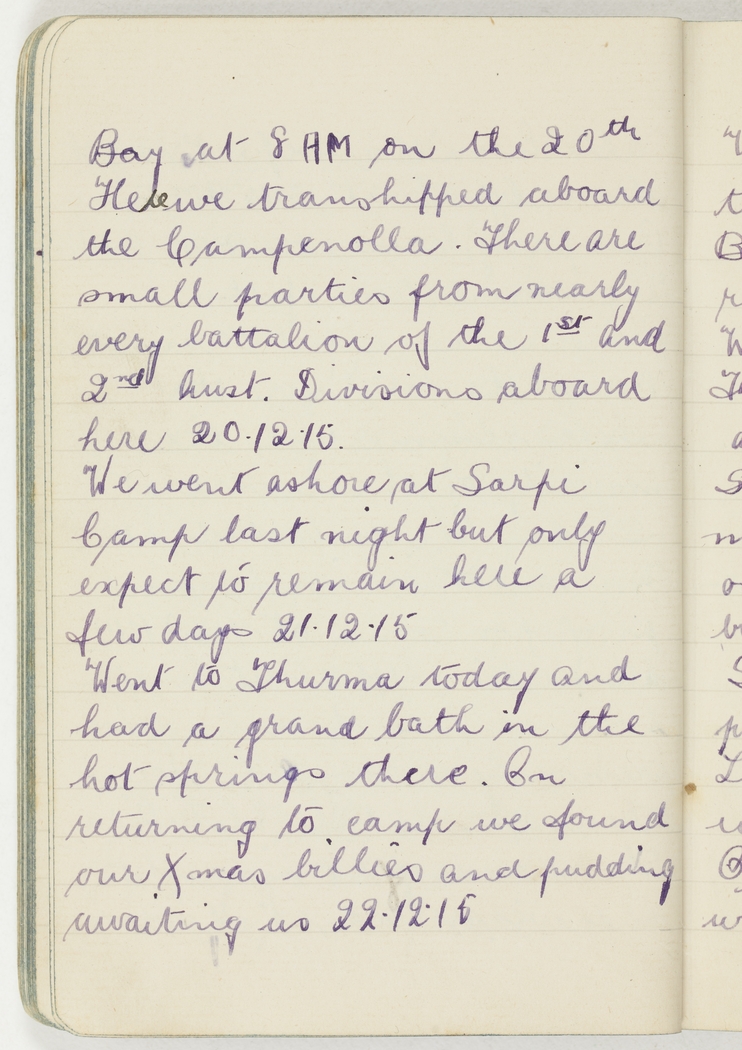 Bay at 8 AM on the 20th
Here we transhipped aboard
the Campenolla. There are
small parties from nearly
every battalion of the 1st and
2nd Aust. Divisions aboard
here 20.12.15.
We went ashore at Sarpi
Camp last night but only
expect to remain here a
few days 21.12.15
Went to Thurma today and
had a grand bath in the
hot springs there. On
returning to camp we found
our Xmas billies and pudding
awaiting us 22.12.15